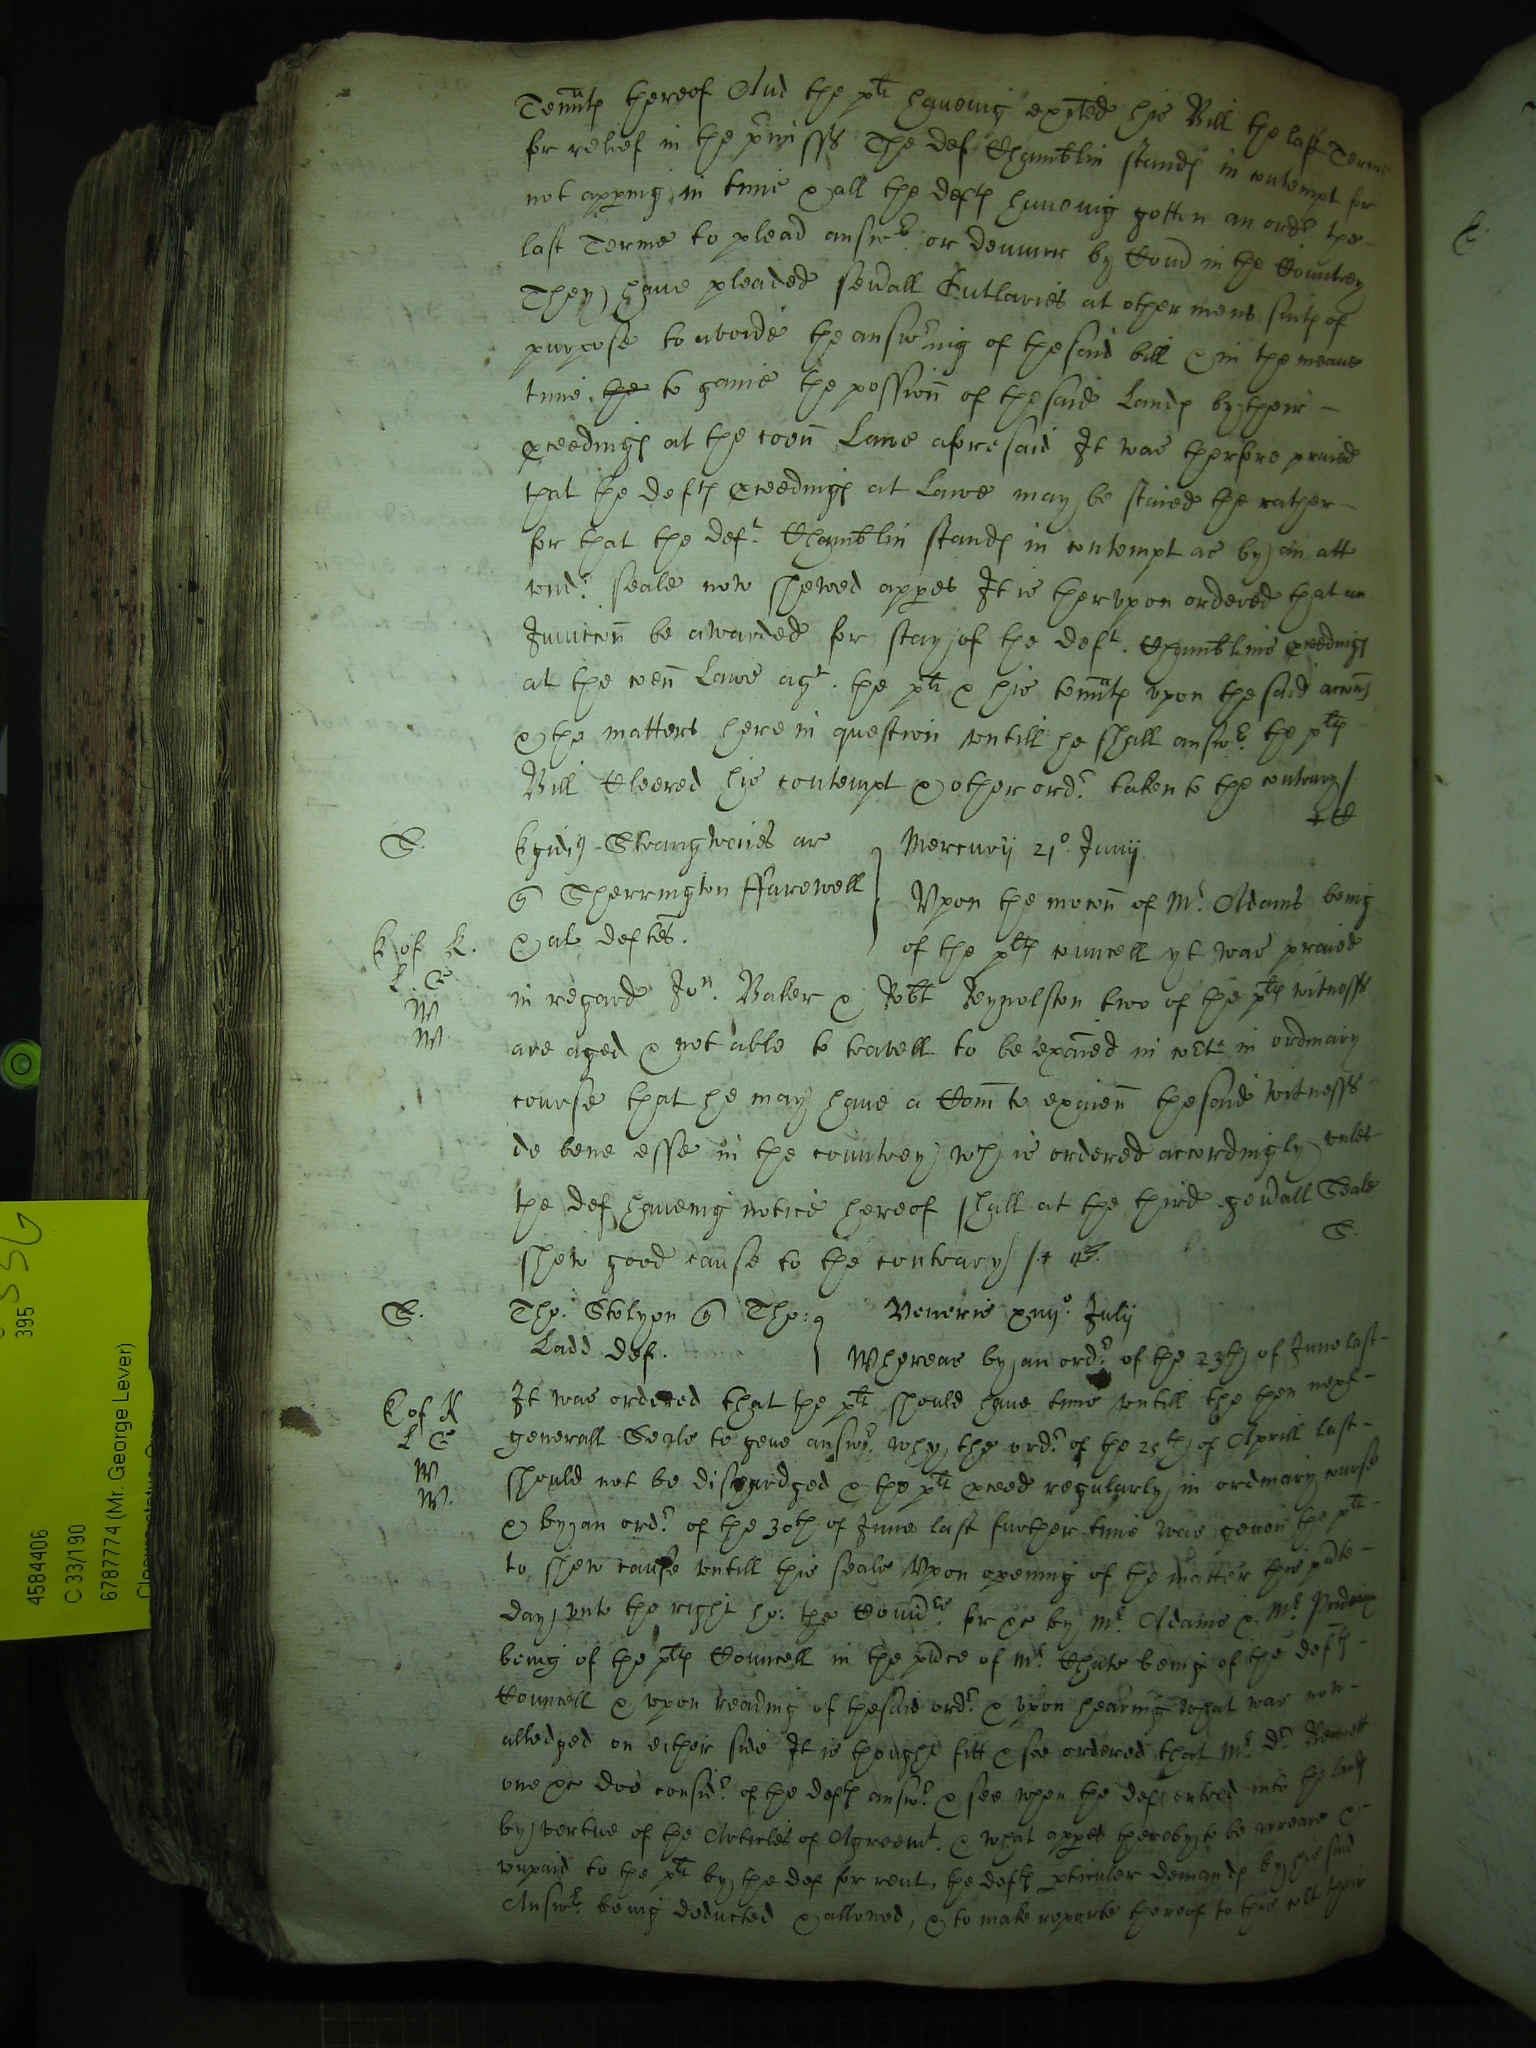 Tennts thereof And the plt haveing exhited his Bill the last Terme
for relief in the pmisss The def Chamblin stands in contempt for
not apping in time & all the defts haveing gotten an ordr the
last Terme to plead answr or demurr by Com in the Countrey
They have pleaded sevall Outlaries at other mens suits of
purpose to avoide the answring of the said bill & in the meane
time he to gaine the possion of the said Lands by their
pceedings at the coen Lawe aforesaid It was therfore praied
that the defts pceedings at Lawe may be staied the rather
for that the deft Chamblin stands in contempt as by an att
undr seale now shewed appes It is therupon ordered that an
Iniuccon be awarded for stay of the deft. Chamblins pceedings
at the coen Lawe agt. the plt & his tennts upon the said accons
& the matters here in question untill he shall answr the plts
Bill Cleered his contempt & other ordr taken to the contrary
S.
Egidi9 Strangwaies ar
Mercurij 21o. Junij
Sherrington ffarewell
Upon the mocon of Mr. Adams being
K of R.
& al deftes.
of the plts councell yt was praied
L. S
in regard Jon. Baker & Robt Reynolston two of the plts witnesss
W
W
are aged & not able to travell to be exaied in cort in ordinary
course that he may have a Com to exaien the said witnesss
de bene esse in the countrey wch is ordered accordingly unles
the def haveing notice hereof shall at the third genall Seale
S.
shew good cause to the contrary
S.
Tho. Stolyon Tho:
Veneris xiiijo. Julij
Ladd def.
Whereas by an ordr of the 23th of June last
K of R
It was ordered that the plt should have time untill the then next
L S
generall Seale to geve answr why the ordr of the 25th of Aprill last
W
should not be dischardged & the plt pceed regularly in ordinary course
W.
& by an ordr of the 30th of June last further time was geven the plt
to shew cause untill this seale Upon opening of the matter this pnte
day unto the right ho: the Comrs for &c by Mr. Adams & Mr. Prideaux
being of the plts Councell in the pnce of Mr. Chute being of the defts
Councell & upon reading of the said ordr & upon hearing what was now
alledged on either side It is thought fitt & soe ordered that Mr. Dr. Bennett
one &c doe considr of the defts answr & see when the def entred into the lands
by vertue of the Articles of Agreemt. & what appes thereby to be arreare &
unpaid to the plt by the def for rent, the defts pticuler demands by his said
Answr being deducted & allowed, & to make reporte thereof to this cort their
395
4584406
C 33/190
6787774 (Mr. George Lever)